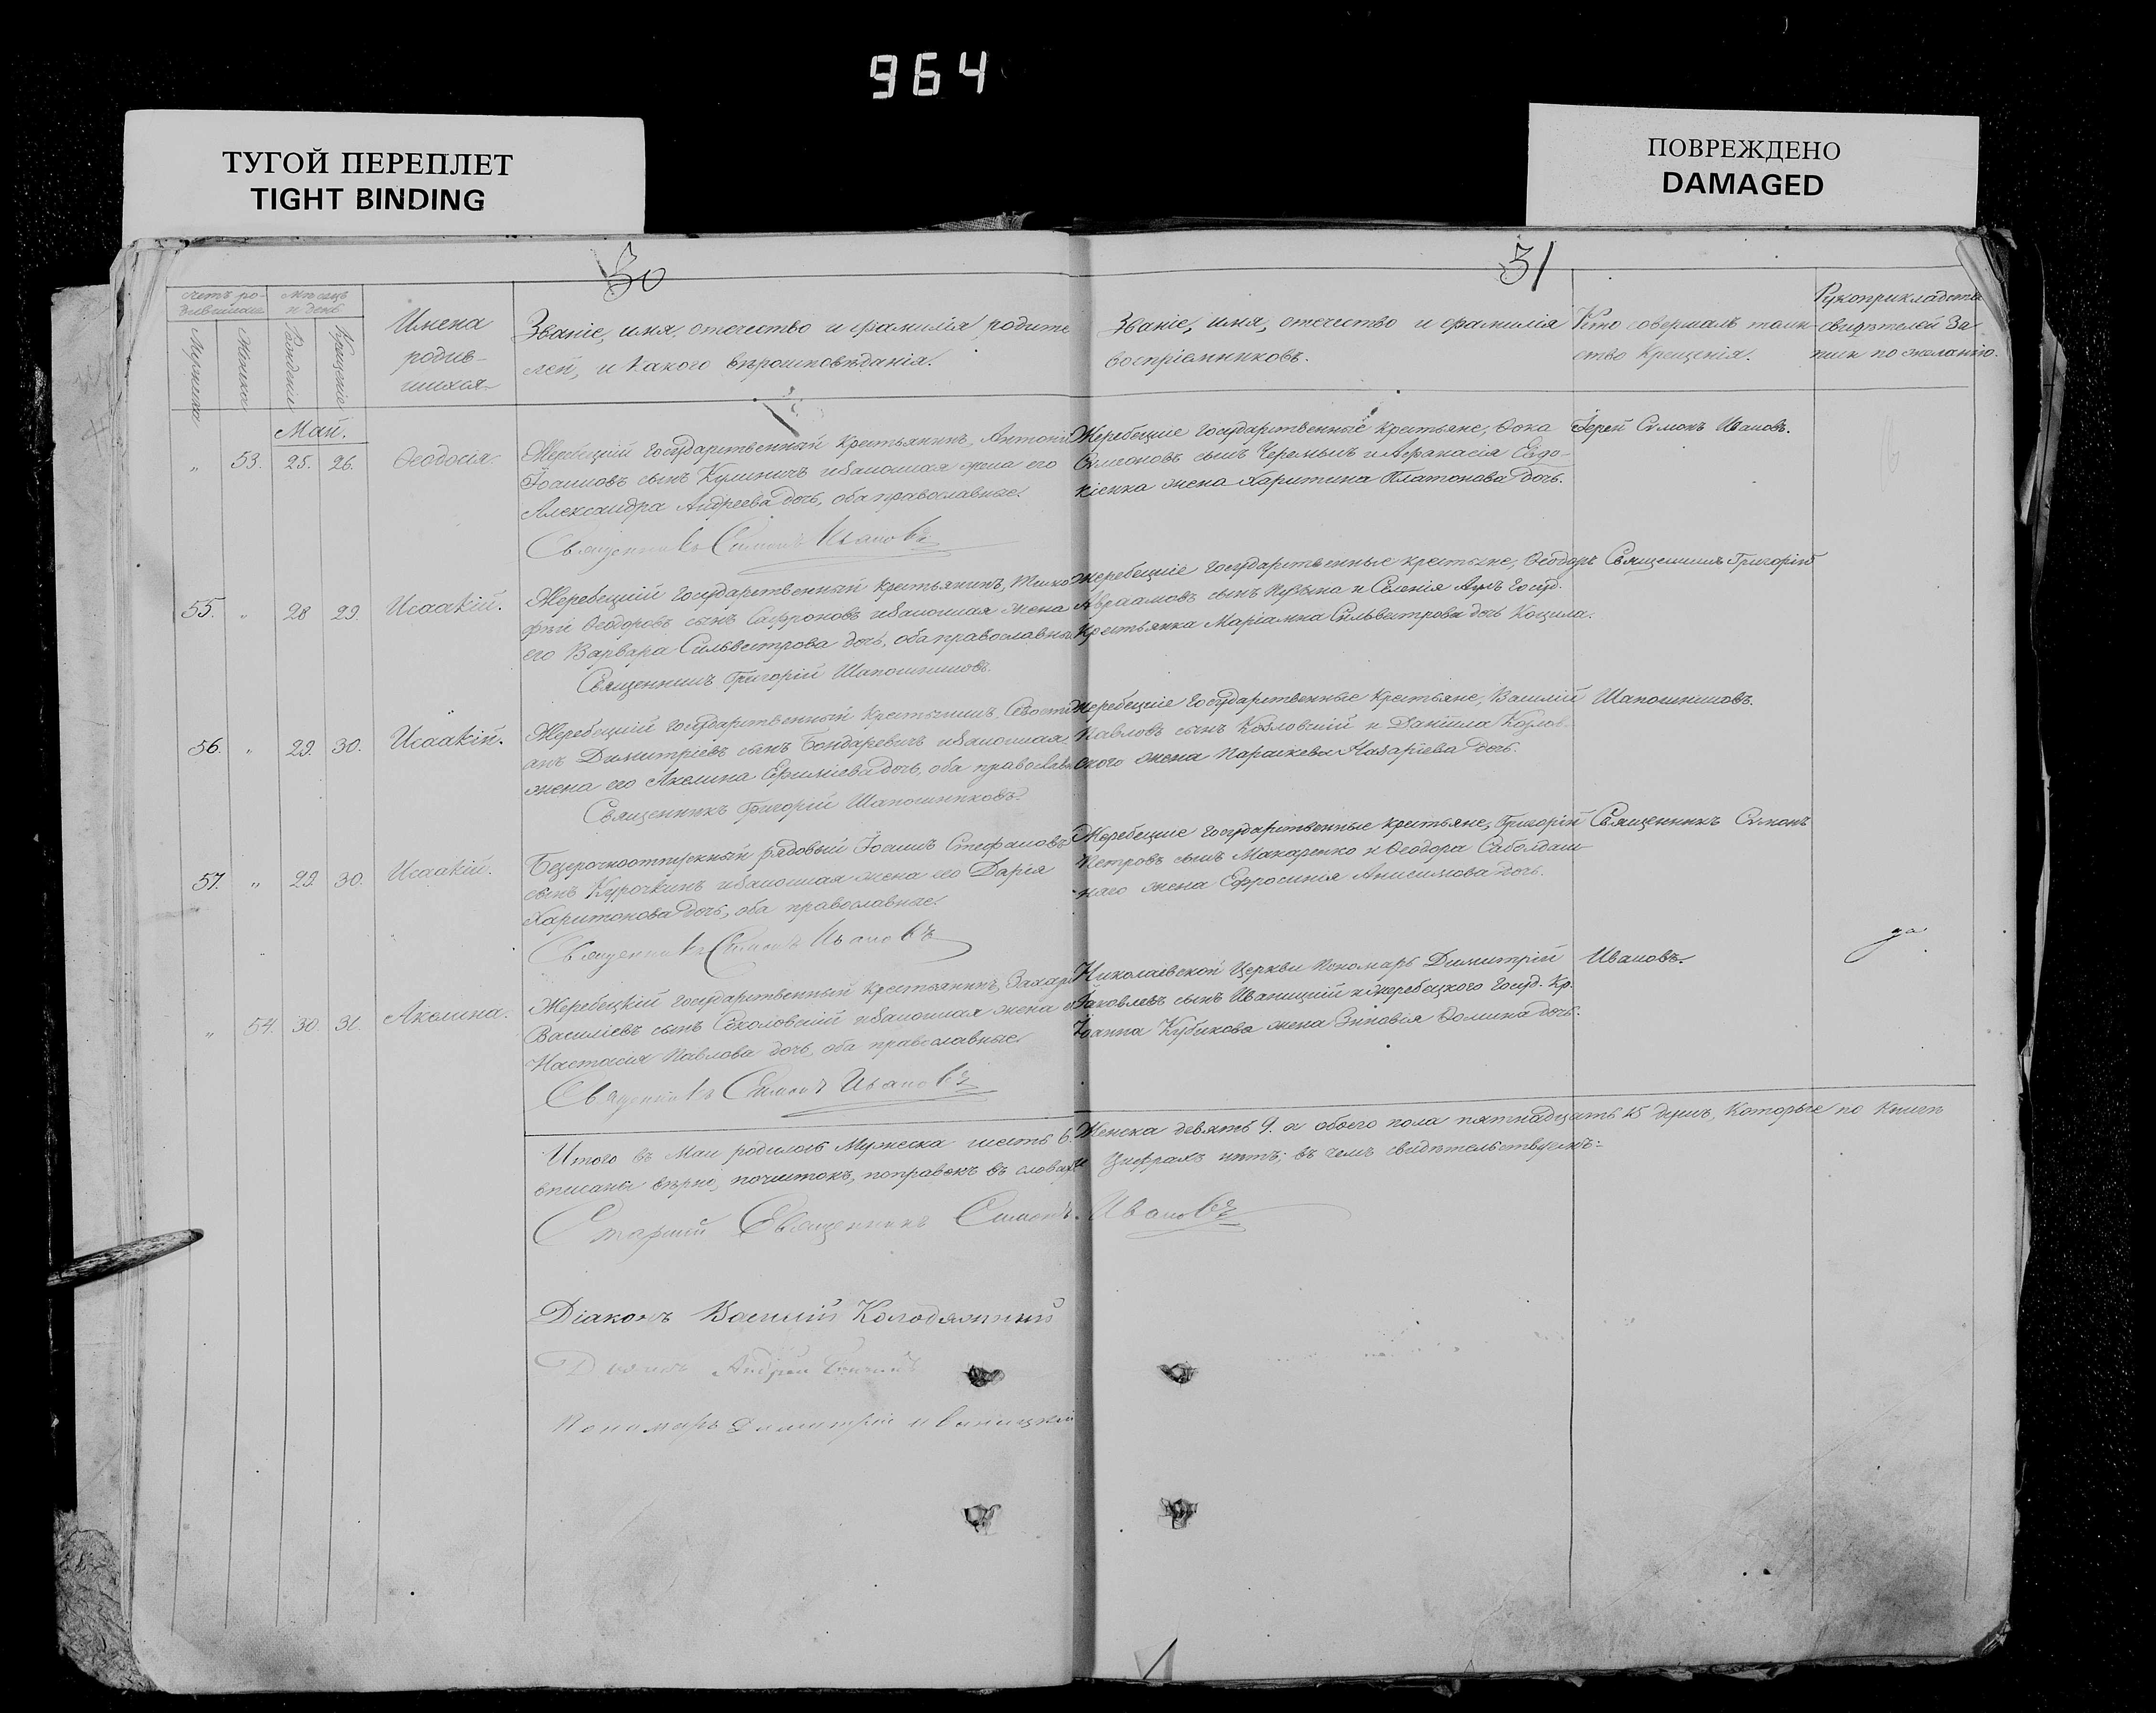 964
ТУГОЙ ПЕРЕПЛЕТ
TIGHT BINDING
ПОВРЕЖДЕНО
DAMAGED
30
31
Счетъ ро-
дившихся
Мѣсяцъ
и день
Имена
родив-
шихся
Званіе, имя, отечество и фамилія, родите
лей, и какого вѣроисповѣданія.
Званіе, имя, отечество и фамилія
воспріемниковъ.
Кто совершалъ таин-
ство крещенія.
Рукоприкладство
свидѣтелей за-
писи по желанію.
Мужеска
Женска
Рожденіе
Крещеніе
Май.
„ 53. 25. 26. Ѳеодосія.
Жеребецкій государственный крестьянинъ, Антоній
Іоанновъ сынъ Кулиничъ и законная жена его
Александра Андреева дочь, оба православные.
Священникъ Симонъ Ивановъ
Жеребецкіе государственные крестьяне, Ѳока
Симеоновъ сынъ и Афанасія Евдо-
кіенка жена Харитина Платонова дочь.
Іерей Симонъ Ивановъ.
55. „ 28 29. Исаакій.
Жеребецкій государственный крестьянинъ, Тимо
фей Ѳеодоровъ сынъ Сафроновъ и законная жена
его Варвара Сильвестрова дочь, оба православны
Священникъ Григорій Шапошниковъ.
Жеребецкіе государственные крестьяне, Ѳеодоръ
Авраамовъ сынъ Музыка и Селенія госуд.
крестьянка Маріамна Сильвестрова дочь
Священникъ Григорій
56. „ 29. 30. Исаакій.
Жеребецкій государственный крестьянинъ, Севасти
анъ Димитріевъ сынъ Бондаревъ и законная
жена его Акелина Ефиміева дочь, оба православн
Священникъ Григорій Шапошниковъ.
Жеребецкіе государственные крестьяне, Василій
Павловъ сынъ Козловскій и Даніила Козлов-
ского жена Параскева Назаріева дочь.
Шапошниковъ.
57. „ 29 30. Исаакій.
Безсрочноотпускный рядовый Іоаннъ Стефановъ
сынъ Курочкинъ и законная жена его Дарія
Харитонова дочь, оба православные.
Священникъ Симонъ Ивановъ
Жеребецкіе государственные крестьяне, Григорій
Петровъ сынъ Макаренко и Ѳеодора
наго жена Ефросинія Анисимова дочь.
Священникъ Симонъ
„ 54. 30. 31. Акелина.
Жеребецкій государственный крестьянинъ, Захарі
Василіевъ сынъ Соколовскій и законная жена его
Настасія Павлова дочь, оба православные.
Священникъ Симонъ Ивановъ
Николаевской Церкви пономарь Димитрій
Іаковлевъ сынъ Иваницкій и жеребецкого госуд. кр.
Іоанна Кубикова жена Зиновія Домина дочь.
Ивановъ.
Итого въ Маи родилось Мужеска шесть 6. Женска девять 9. а обоего пола пятнадцать 15 душъ, которые по книгѣ
вписаны вѣрно, почистокъ, поправокъ въ словахъ и цифрахъ нѣтъ; въ чемъ свидѣтельствуемъ:
Старшій Священникъ Симонъ Ивановъ
Діаконъ Василій Колодяжный
Андрей
Пономарь Димитрій Иваницкій